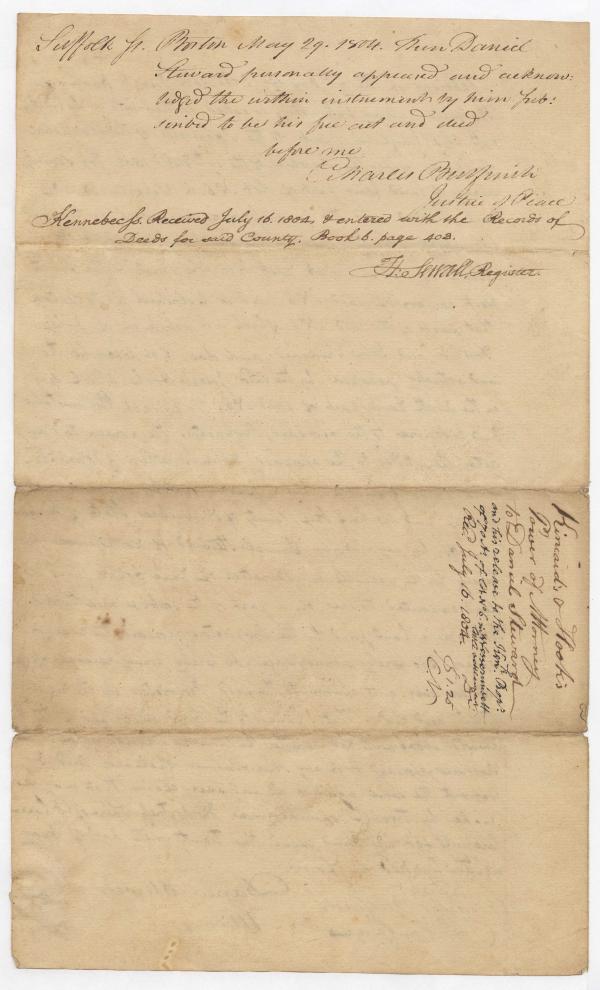 Suffolk ss. Boston May 29. 1804. Then Daniel
Steward personally appeared and acknow:
ledged the within instrument by him sub:
scribed to be his free act and deed
before me
Charles Bulfinch
Justice of Peace
Kennebec ss. Received July 16. 1804, & entered with the Records of
Deeds for said County. Book 6. page 403.
H. Sewall, Register.
Kincaid's & Hook's
Power of Attorney
to Daniel Steward
and his release to the Kenk. Prop.
of 70 As. of
Recd July 16. 1804.
$1,25